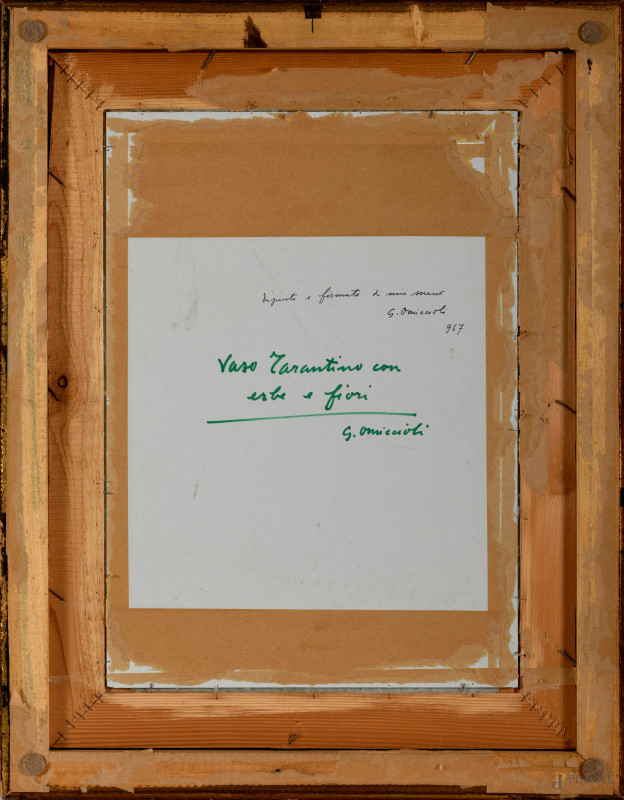 dipinto e firmato di mia mano
G. Omiccioli
967
Vaso Tarantino con
erbe e fiori
G. Omiccioli